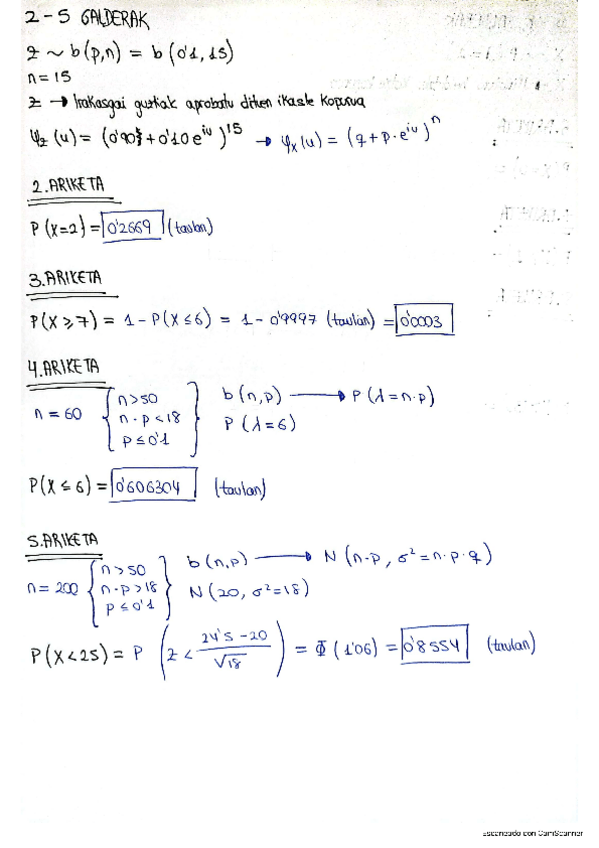 2-5 GALDERAK
Z ~ b(p,n) = b(0'1,15)
n=15
Z → Irakasgai guztiak aprobatu dituen ikasle kopurua
Ψz(u) = (0'90 + 0'10e^iu)^15 → Ψx(u) = (q+p·e^iu)^n
2.ARIKETA
P(X=2) = 0'2669 (taulan)
3.ARIKETA
P(X≥7) = 1-P(X≤6) = 1-0'9997 (taulan) = 0'0003
4.ARIKETA
n=60 { n>50 } b(n,p) → P(λ=n·p)
n·p<18 P(λ=6)
p≤0'1
P(X≤6) = 0'606304 (taulan)
5.ARIKETA
n=200 { n>50 } b(n,p) → N(n·p, σ²=n·p·q)
n·p>18 N(20, σ²=18)
p≤0'1
P(X<25) = P(Z < 24'5-20 / √18) = Φ(1'06) = 0'8554 (taulan)
Escaneado con CamScanner